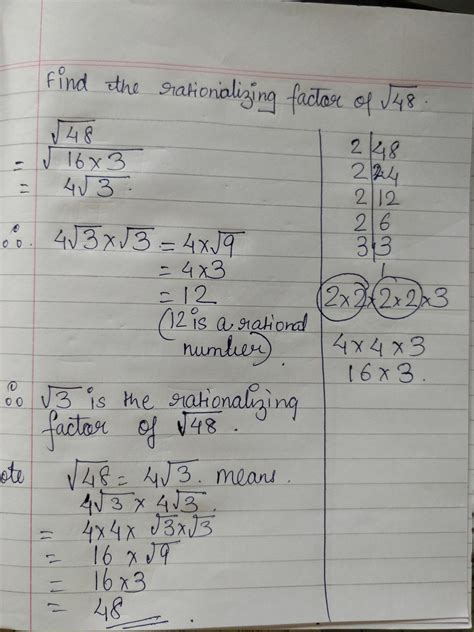 Find the rationalizing factor of √48.
√48
= √16×3
= 4√3.
∴ 4√3×√3 = 4×√9
= 4×3
= 12
(12 is a rational
number).
∴ √3 is the rationalizing
factor of √48.
ote √48 = 4√3. means.
4√3 × 4√3.
= 4×4× √3×√3
= 16 × √9
= 16×3
= 48
2|48
2|24
2|12
2|6
3|3
1
2×2×2×2×3
4×4×3
16×3.